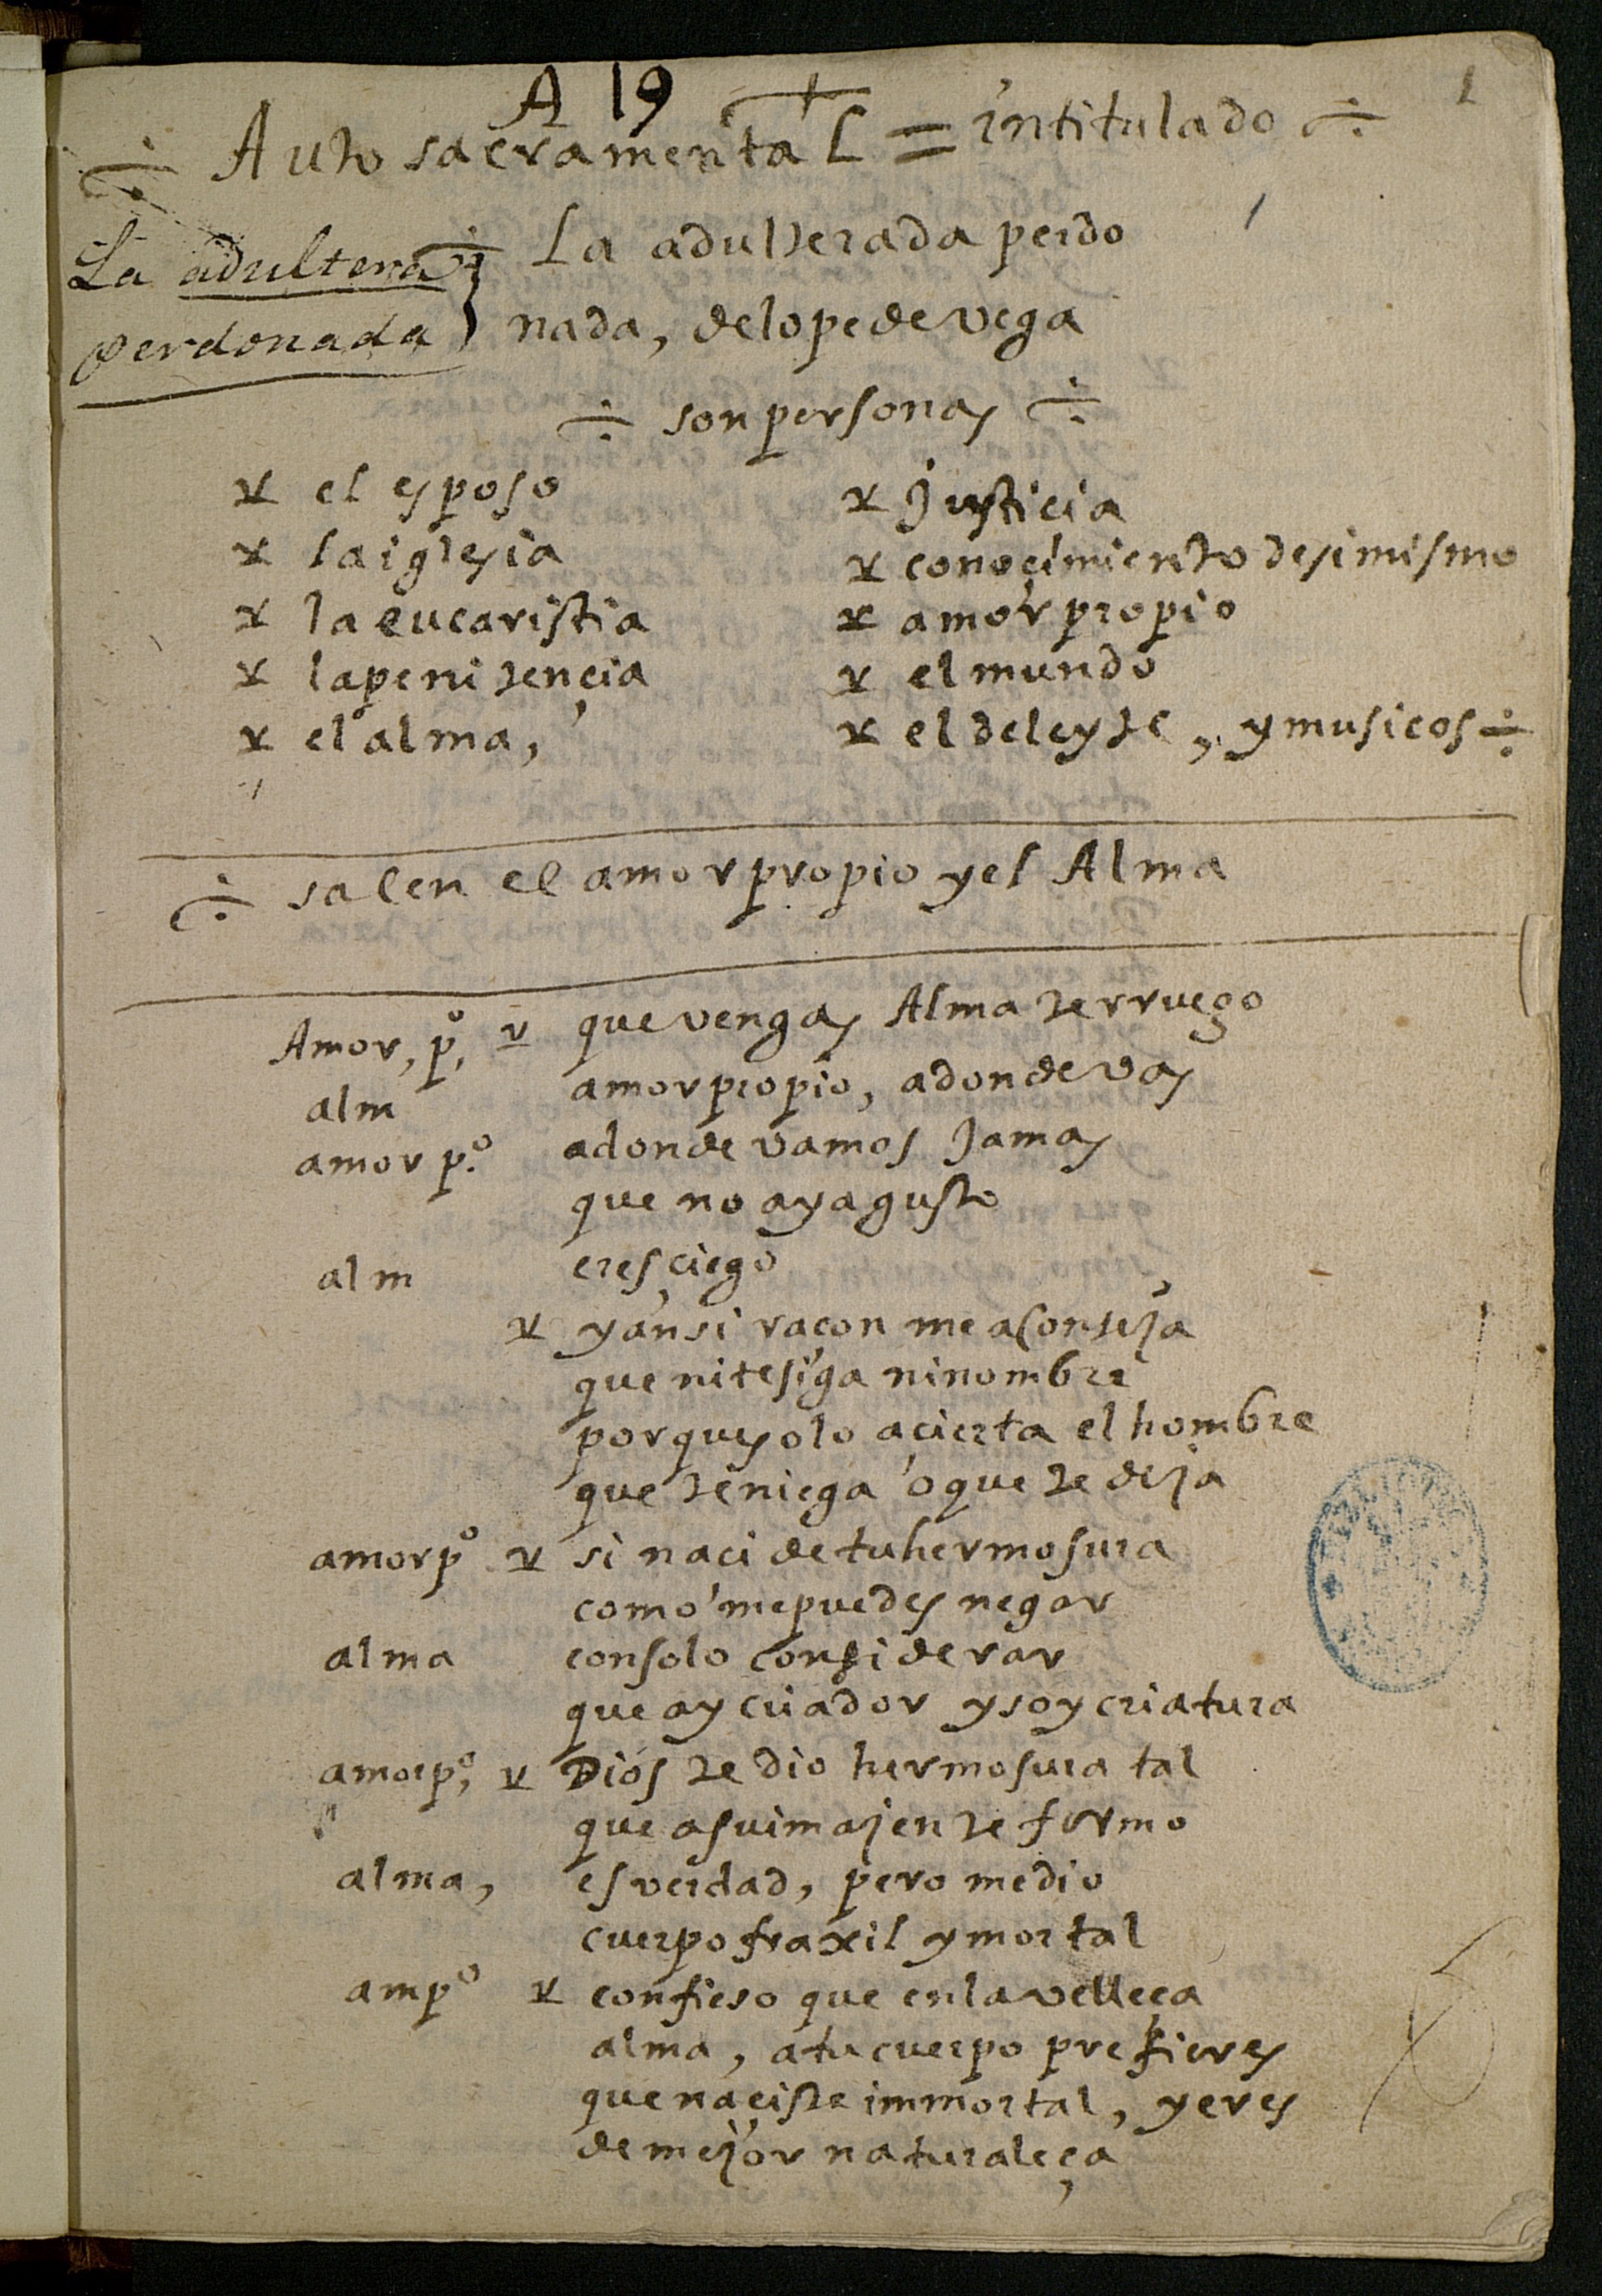 A 19
1
Auto sacramental = intitulado
La adultera
perdonada
La adulterada perdo
nada, de lope de vega
son personas
el esposo
la iglesia
la eucaristia
la penitençia
el alma,
justicia
conoçimiento de si mismo
amor propio
el mundo
el deleyte, y musicos
salen el amor propio y el Alma
Amor, pº, que vengas Alma te rruego
alm amor propio, adonde vas
amor pº adonde vamos jamas
que no aya gusto
alm eres çiego
y ansi raçon me aconseja
que ni te siga ni nombre
porque solo açierta el hombre
que te niega o que te deja
amor pº si naci de tu hermosura
como me puedes negar
alma con solo considerar
que ay criador y soy criatura
amor pº, Dios te dio hermosura tal
que a su imajen te formo
alma, es verdad, pero me dio
cuerpo fraxil y mortal
am pº confieso que en la velleça
alma, a tu cuerpo prefieres
que naciste immortal, y eres
de mejor naturaleça